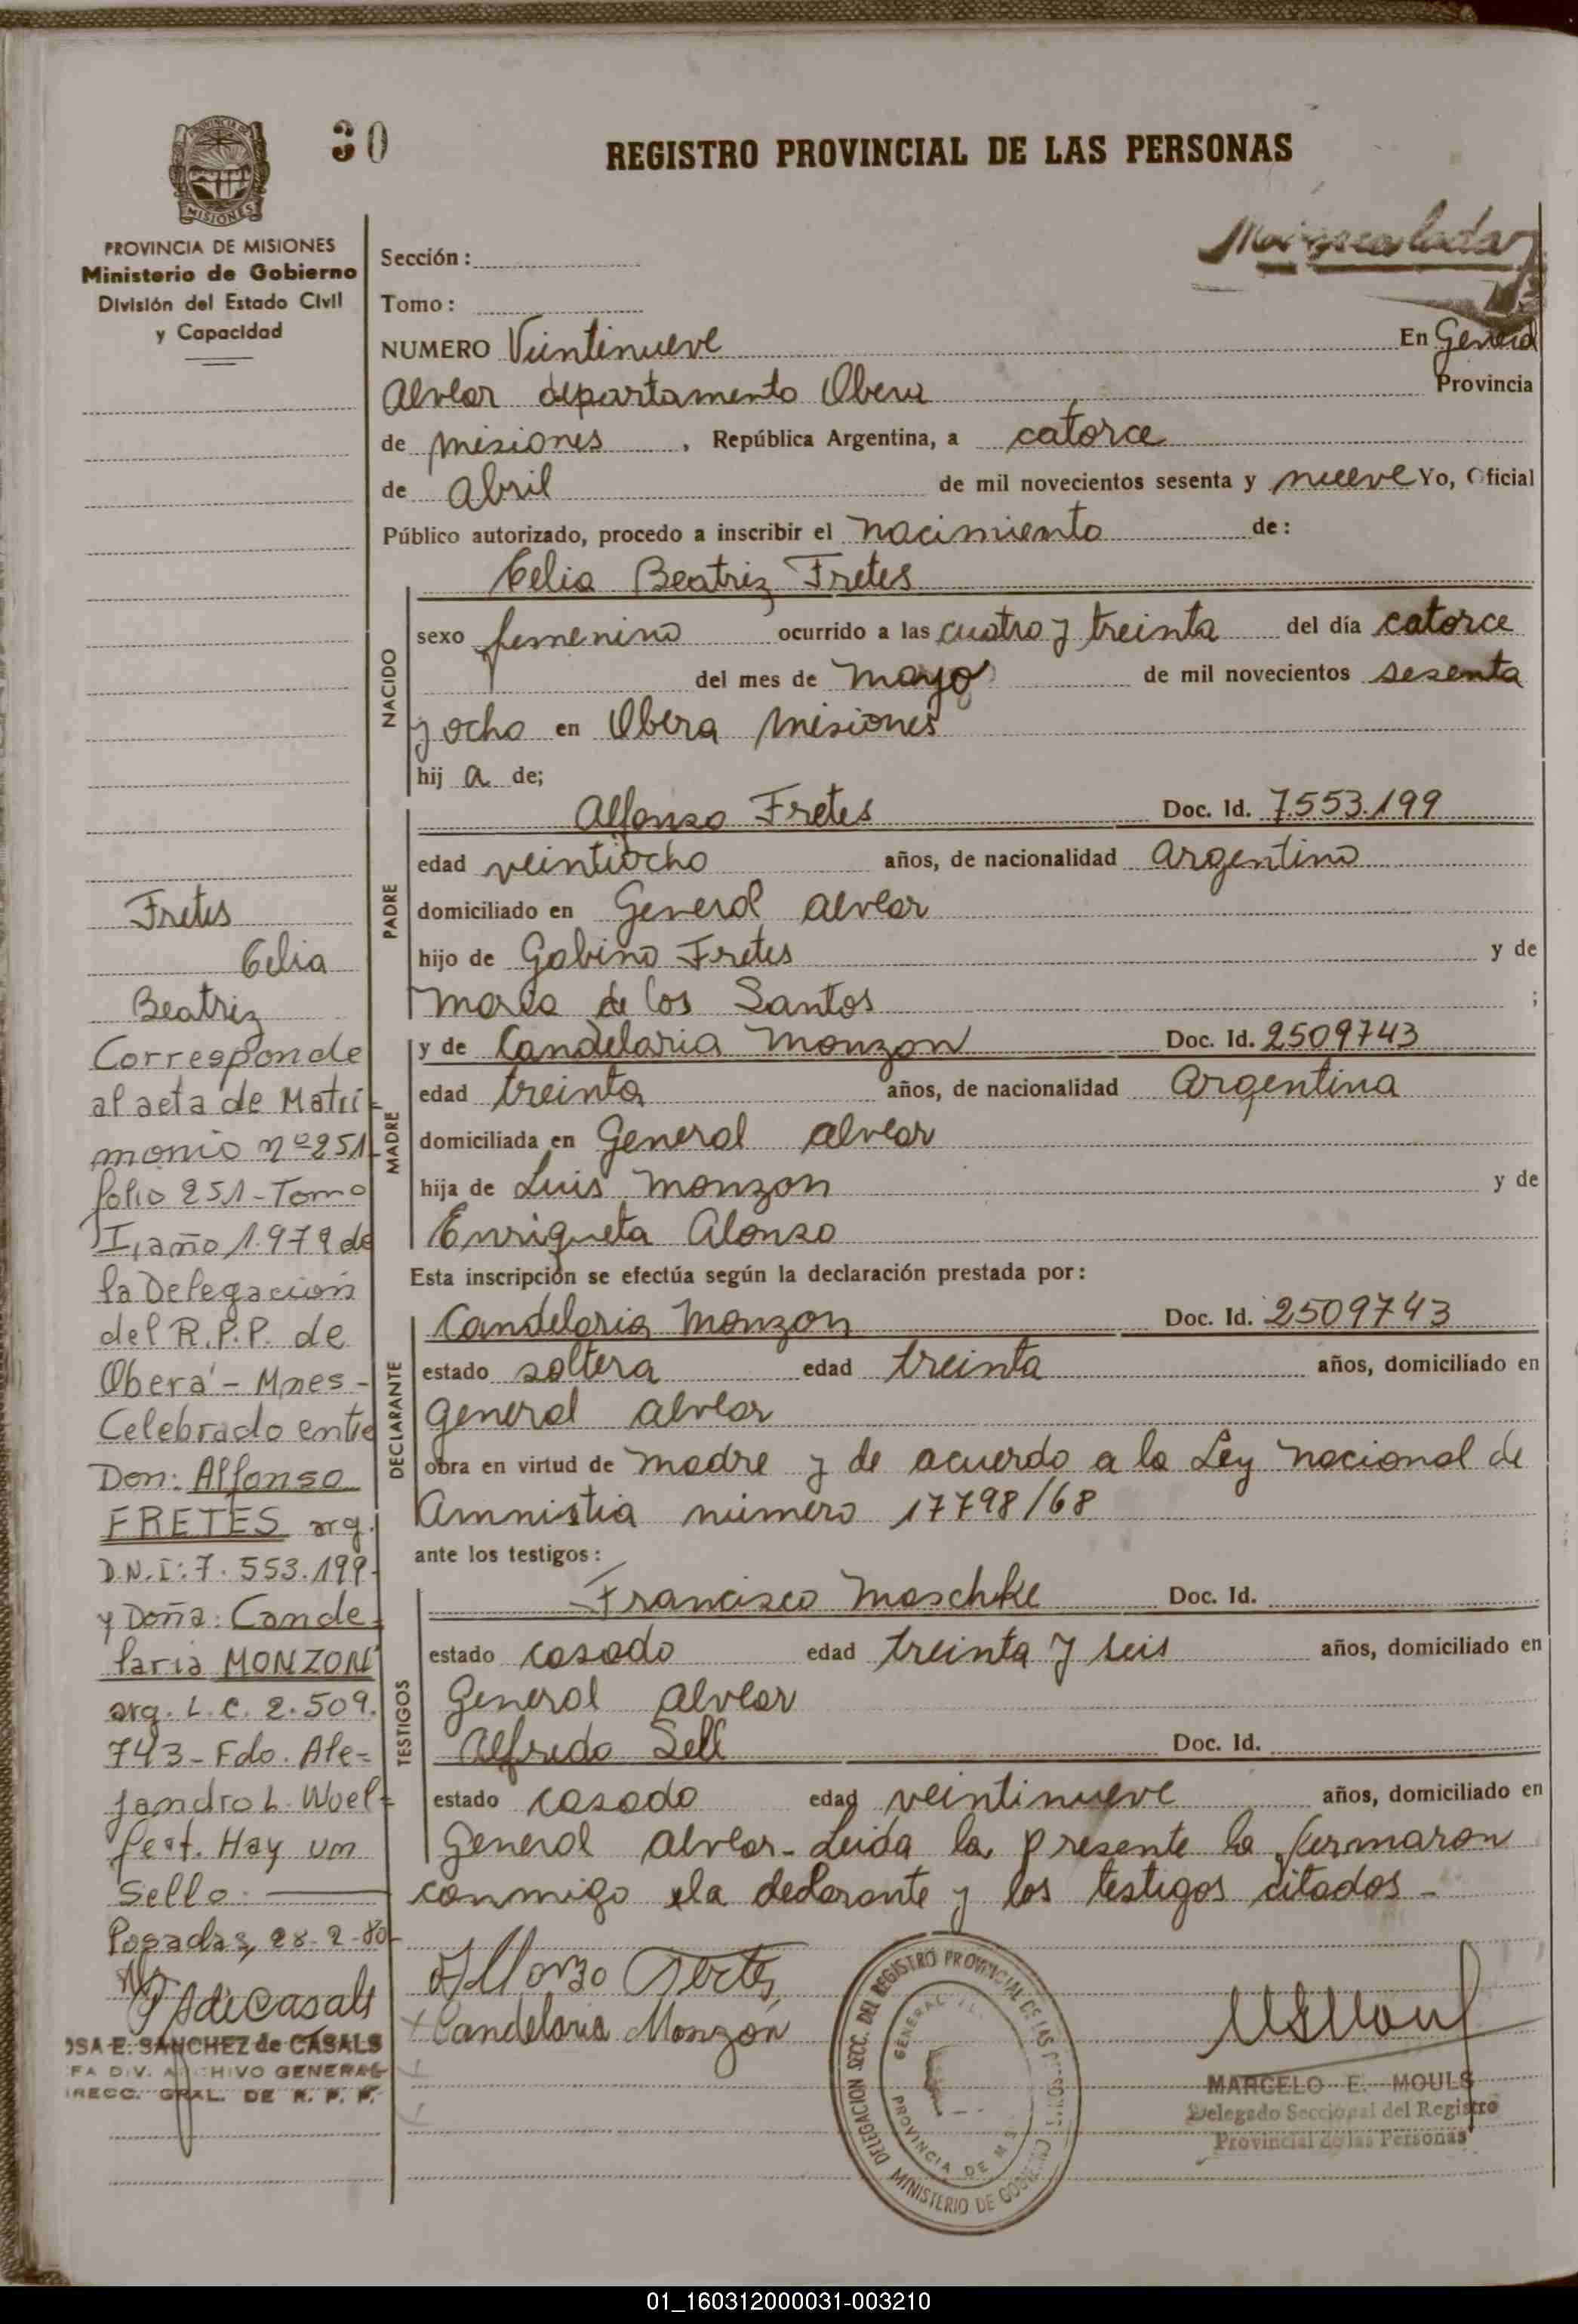 30
REGISTRO PROVINCIAL DE LAS PERSONAS
PROVINCIA DE
MISIONES
PROVINCIA DE MISIONES
Ministerio de Gobierno
División del Estado Civil
y Capacidad
Sección:
Tomo:
NUMERO Veintinueve En General
Alvear departamento Obera Provincia
de misiones, República Argentina, a catorce
de abril de mil novecientos sesenta y nueve Yo, Oficial
Público autorizado, procedo a inscribir el nacimiento de:
NACIDO
Celia Beatriz Fretes
sexo femenino ocurrido a las cuatro y treinta del día catorce
del mes de mayo de mil novecientos sesenta
y ocho en Obera misiones
hij a de;
PADRE
Alfonso Fretes Doc. Id. 7.553.199
edad veintiocho años, de nacionalidad argentino
domiciliado en General alvear
hijo de Gabino Fretes y de
maria de los Santos ;
MADRE
y de Candelaria monzon Doc. Id. 2509743
edad treinta años, de nacionalidad argentina
domiciliada en General alvear
hija de Luis monzon y de
Enriqueta Alonso
Esta inscripción se efectúa según la declaración prestada por:
DECLARANTE
Candelaria monzon Doc. Id. 2509743
estado soltera edad treinta años, domiciliado en
general alvear
obra en virtud de madre y de acuerdo a la Ley nacional de
Amnistia número 17798/68
ante los testigos:
TESTIGOS
Francisco Maschke Doc. Id.
estado casado edad treinta y seis años, domiciliado en
General alvear
Alfredo Sell Doc. Id.
estado casado edad veintinueve años, domiciliado en
General alvear - Leida la presente la firmaron
conmigo la declarante y los testigos citados -
Fretes
Celia
Beatriz
Corresponde
al acta de Matri-
monio nº 251-
folio 251 - Tomo
I, año 1.979 de
la Delegación
del R.P.P. de
Oberá - Mnes -
Celebrado entre
Don: Alfonso
FRETES arg.
D.N.I: 7.553.199-
y Doña: Cande-
laria MONZON
arg. L.C. 2.509.
743 - Fdo. Ale-
jandro L. Woel-
fert. Hay un
Sello.
Posadas, 28-2-80-
OSA E. SANCHEZ de CASALS
FA DIV. ARCHIVO GENERAL
IRECC. GRAL. DE R. P. P.
Alfonzo Fretes
Candelaria Monzon
DELEGACION SECC. DEL REGISTRO PROVINCIAL DE LAS PERSONAS
GENERAL
PROVINCIA DE
MINISTERIO DE
MARCELO E. MOULS
Delegado Seccional del Registro
Provincial de las Personas
01_160312000031-003210